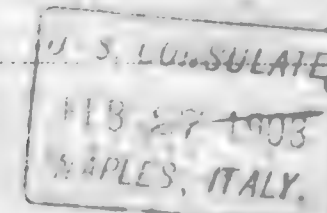 U. S. CONSULATE
FEB 27 1903
NAPLES, ITALY.